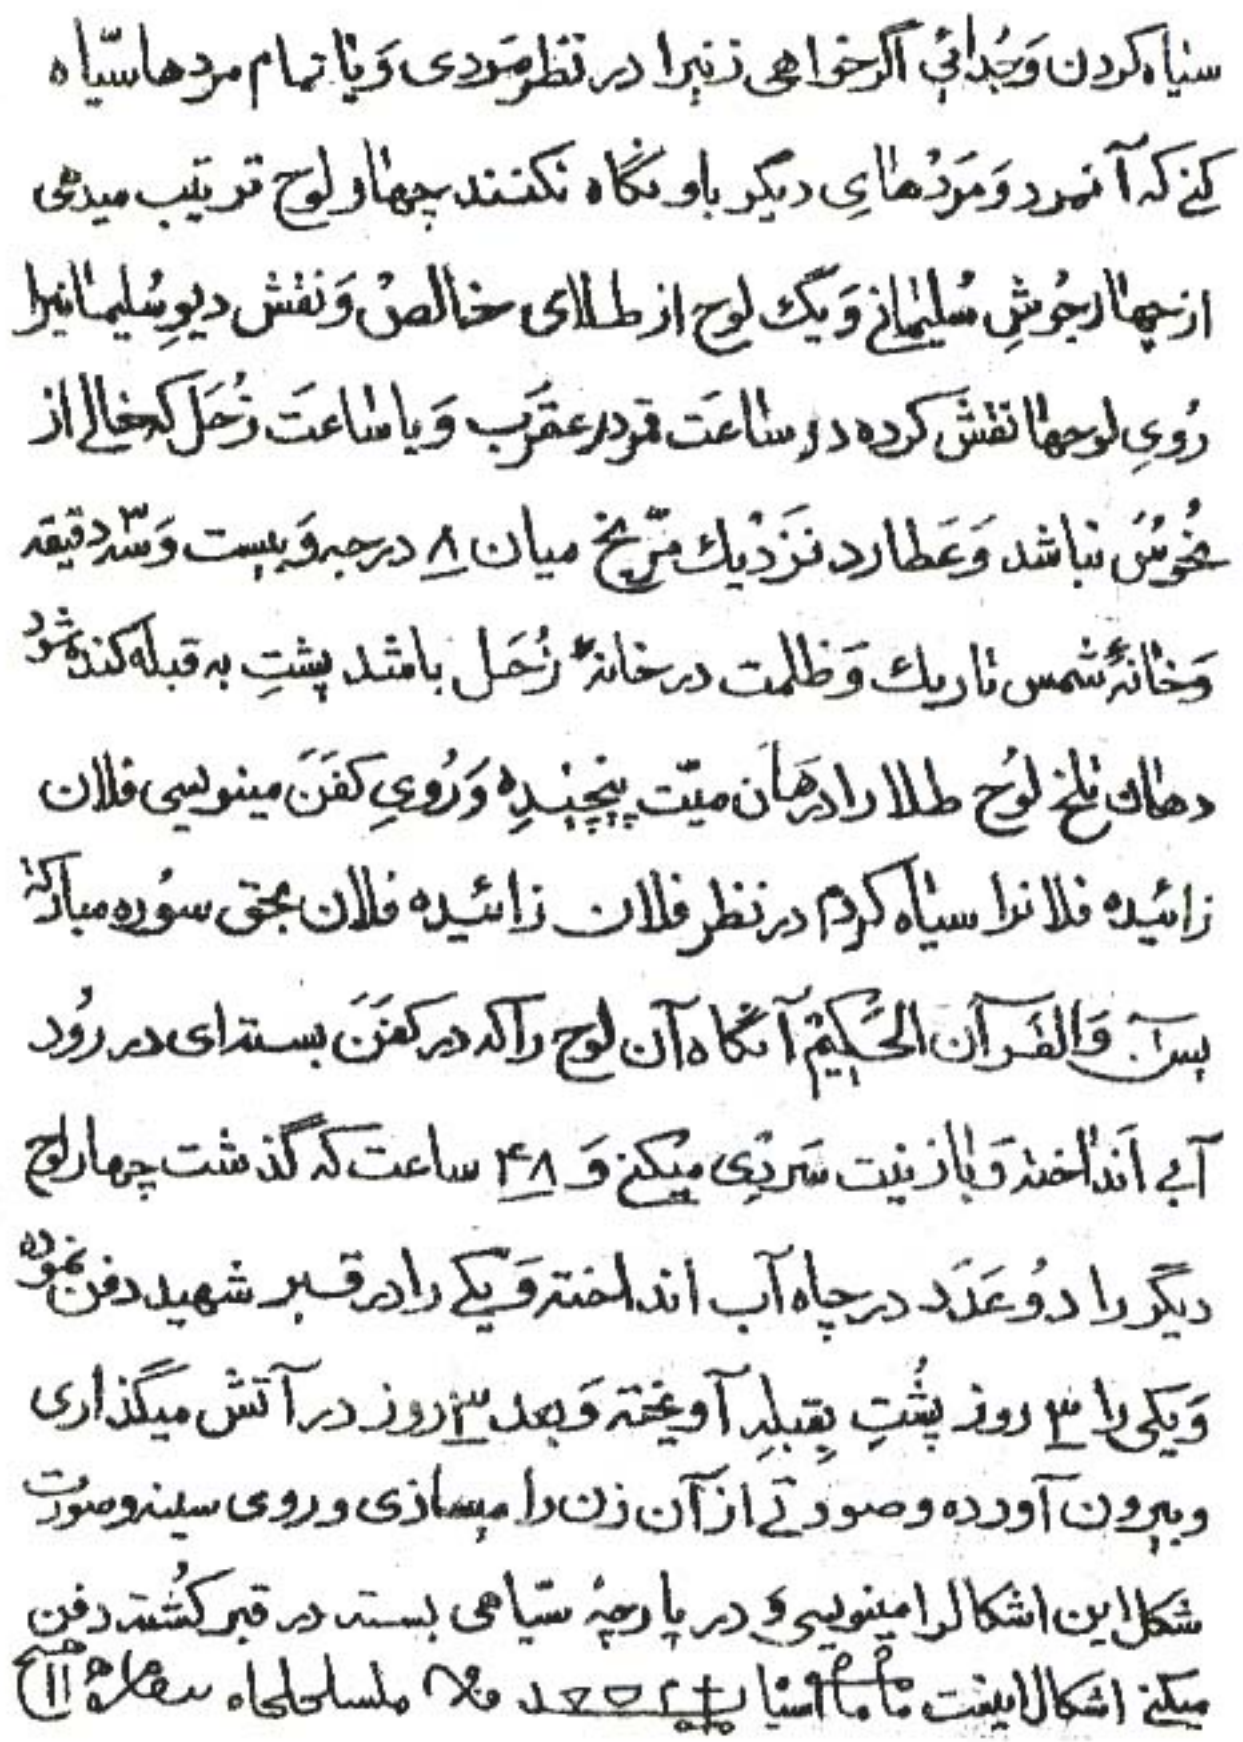 سیاه کردن وَجُدائیِ اگر خواهی زنیرا در نظر مَردی وَ یا تمام مردها سیّاه
کنے که آنمرد وَ مَرَدْهایِ دیگر باو نگاه نکنند چهار لوح ترتیب میدهی
از چهار جُوشِ سُلیمانے وَ یک لوح از طلای خالصْ وَ نقش دیوِ سُلیمانیرا
رُویِ لوحها نقشَ کرده در ساعَت قمر در عقرَب وَ یا ساعَت زُحَل که خالے از
نُحُوسَ نباشد وَ عَطارد نَزَدْیك مرّیخ میان ۸ درجه وَ بیست وَ سّه دقیقه
وَ خانهٔ شمس تاریك وَ ظلمت در خانهٔ زُحَل باشد پشتِ به قبله کنده شود
دهان تلخ لوُح طلا را در دَهان میّت پیچیده وَ رُویِ کفَنَ مینویسی فلان
زائیده فلانرا سیاه کردم در نظر فلان زائیده فلان بحق سوُره مبارکهٔ
یسٓ وَ القُرآن الحَکیمْ آنگاه آن لوح را که در کفَنَ بسته‌ای در رُود
آبے اَنداخته وَ باز نیت سَردْی میکنے وَ ۴۸ ساعت که گذشت چهار لوح
دیگر را دُو عَدَد در چاه آب انداخته وَ یکے را در قبر شهید دفن نموده
وَ یکی را ۳ روز پشُتِ بِقبلهِ آویخته وَ بعد ۳ روز در آتش میگذاری
و بیرون آورده و صورتے از آن زن را میسازی و روی سینه و صورت
شکل این اشکالرا مینویسی وَ در پارچهٔ سیّاهی بسته در قبر کُشته دفن
میکنے اشکال اینست